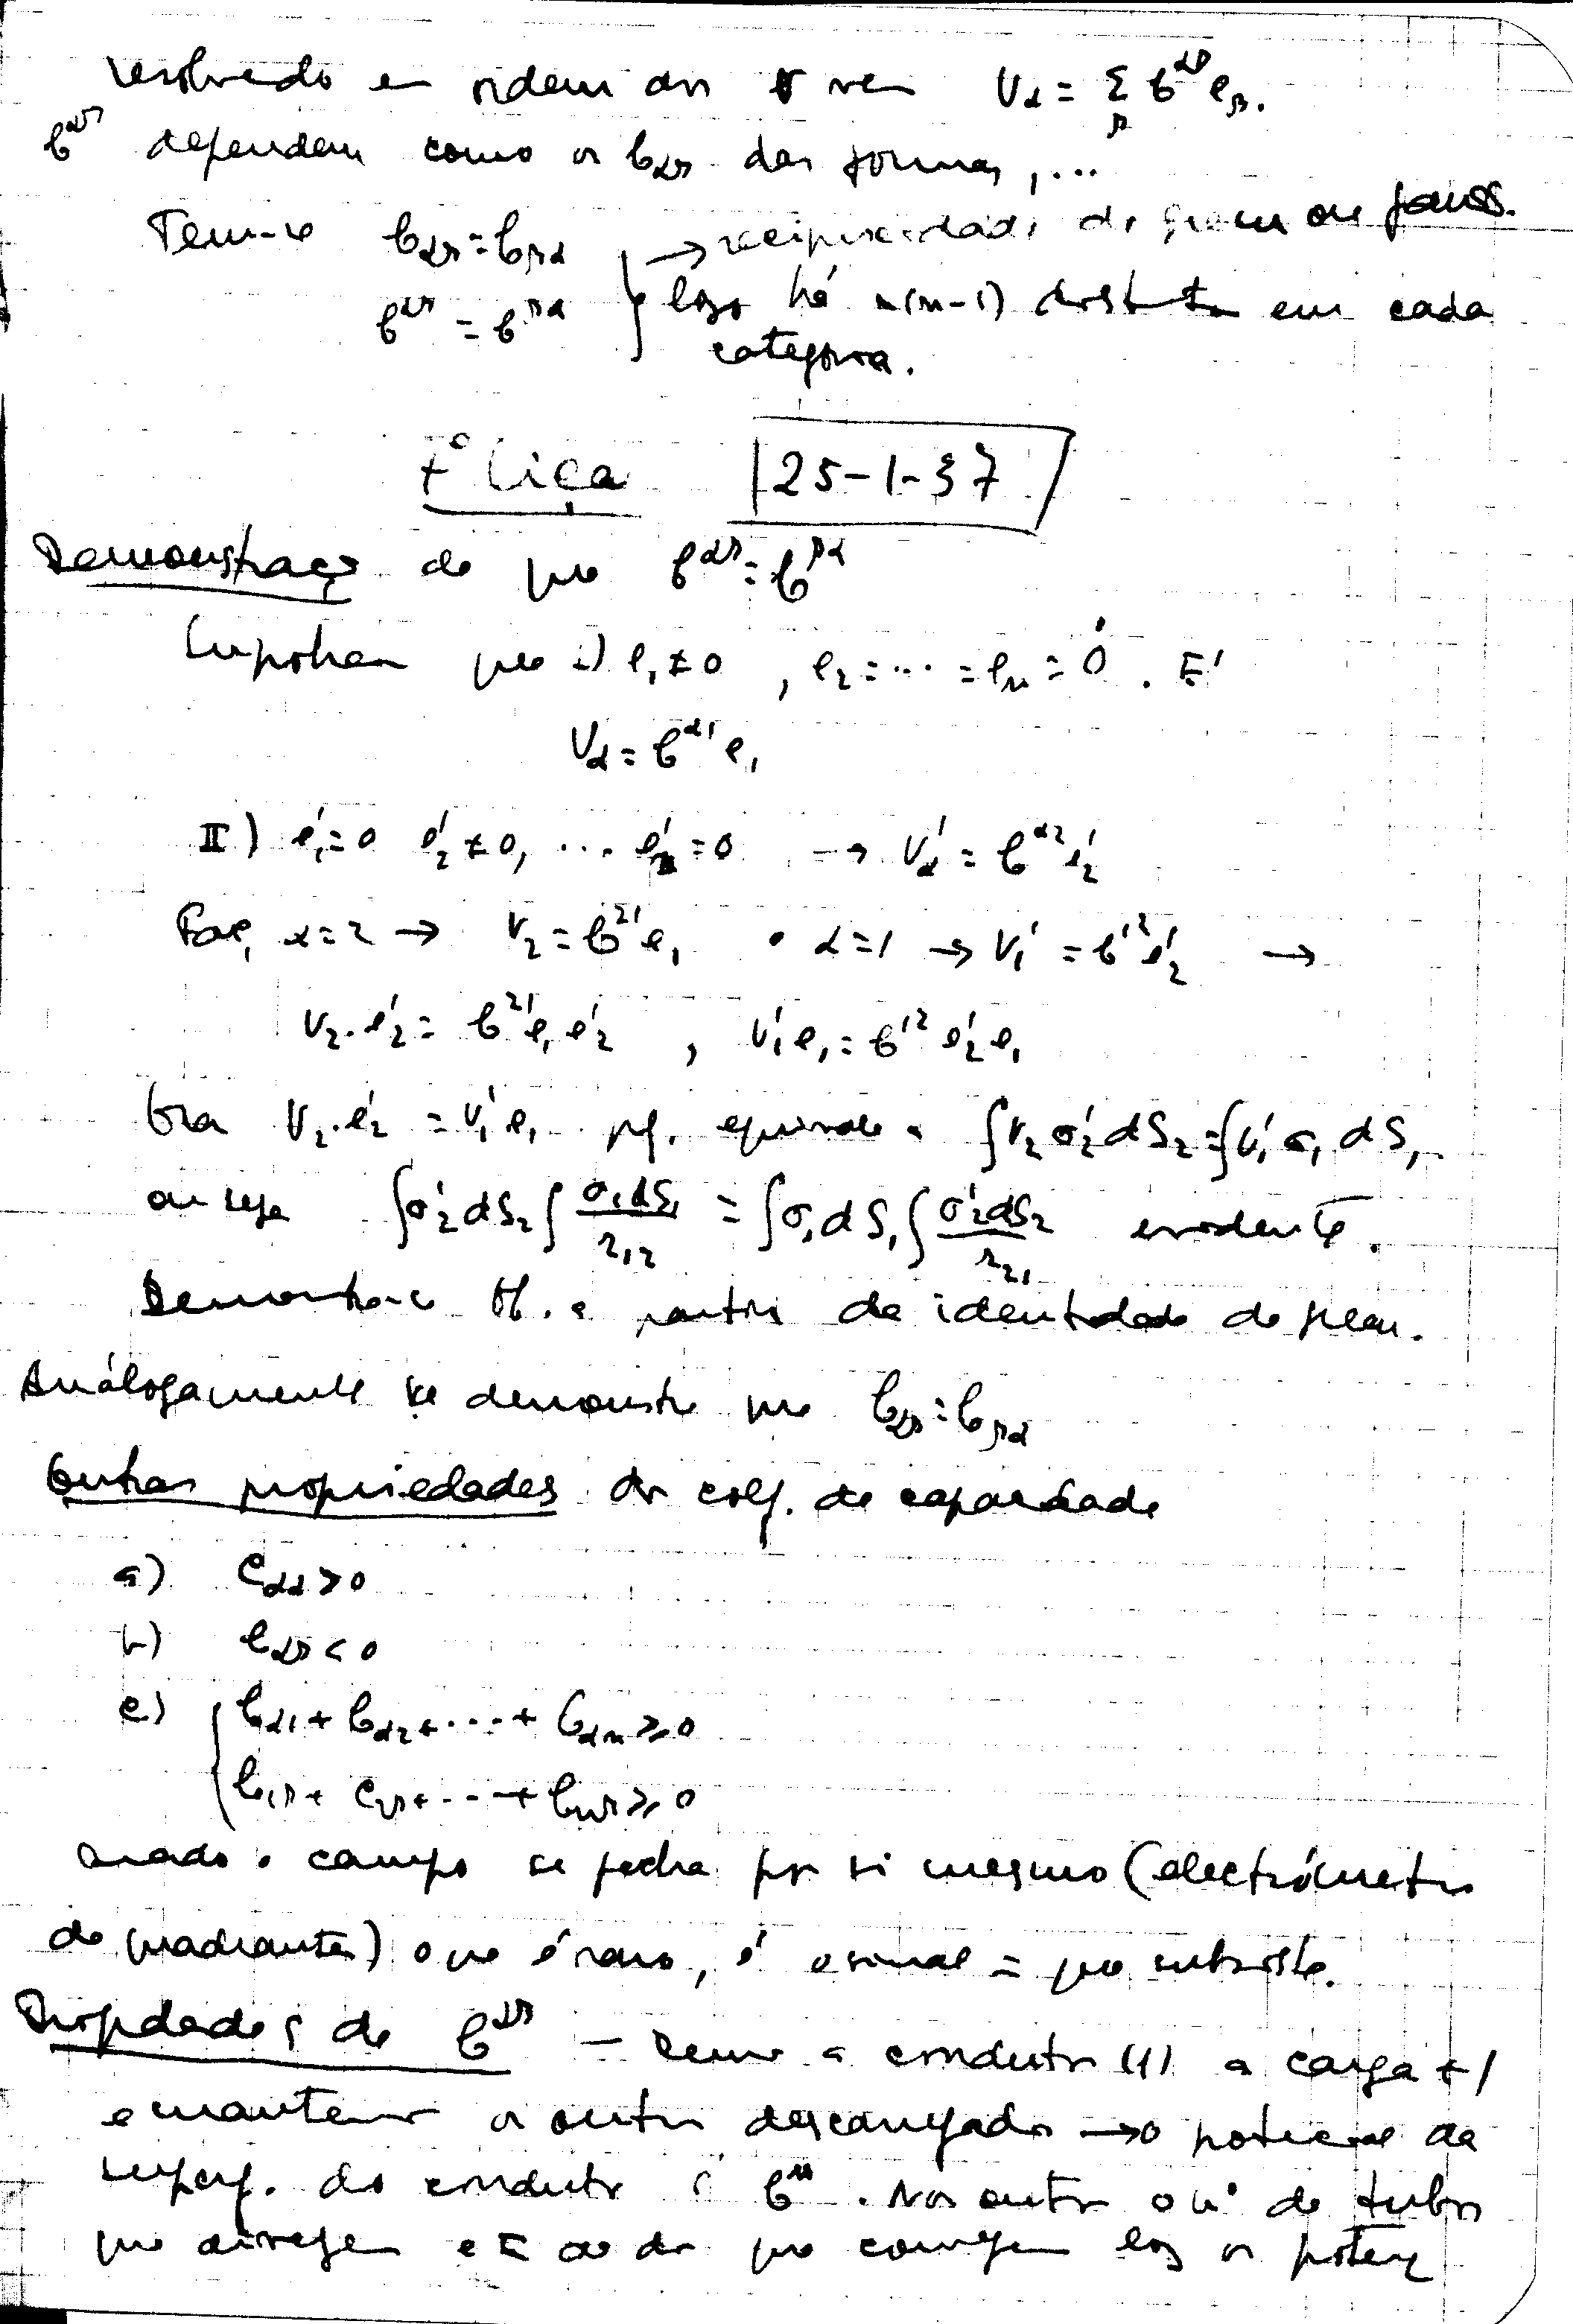 resolvendo em ordem aos V vem V_α = Σ_β C^{αβ} e_β.
C^{αβ} dependem como os C_{αβ} das formas, ...
Tem-se C_{αβ} = C_{βα} → reciprocidade de Green ou Gauss.
C^{αβ} = C^{βα} } logo há n(n-1) em cada
categoria.
7ª Liçã 25-1-37
Demonstração de que C^{αβ} = C^{βα}
Suponham que I) e_1 ≠ 0, e_2 = ... = e_n = 0. E'
V_α = C^{α1} e_1
II) e'_1 = 0 e'_2 ≠ 0, ... e'_n = 0 → V'_α = C^{α2} e'_2
Faç, α=2 → V_2 = C^{21} e_1 . α=1 → V'_1 = C^{12} e'_2 →
V_2 . e'_2 = C^{21} e_1 e'_2 , V'_1 e_1 = C^{12} e'_2 e_1
Ora V_2 . e'_2 = V'_1 e_1 pq. equivale a ∫V_2 σ'_2 dS_2 = ∫V'_1 σ_1 dS_1
ou seja ∫σ'_2 dS_2 ∫ σ_1 dS_1 / r_{12} = ∫σ_1 dS_1 ∫ σ'_2 dS_2 / r_{21} evidente.
Demonstra-se tb. a partir da identidade de Green.
Análogamente se demonstra que C_{αβ} = C_{βα}
Outras propriedades dos coef. de capacidade
a) C_{αα} > 0
b) C_{αβ} < 0
c) { C_{α1} + C_{α2} + ... + C_{αn} ≥ 0
C_{1β} + C_{2β} + ... + C_{nβ} ≥ 0
Quando o campo se fecha por si mesmo (electrómetro
de quadrantes) o que é raro, é o sinal = que subsiste.
Propdades de C^{αβ} - Demos a condutor (1) a carga +1
e mantemos os outros descarregados → o potencial da
superf. do condutor é C^{11}. Nos outros o nº de tubos
que divergem é = ao dos que convergem logo os potenc